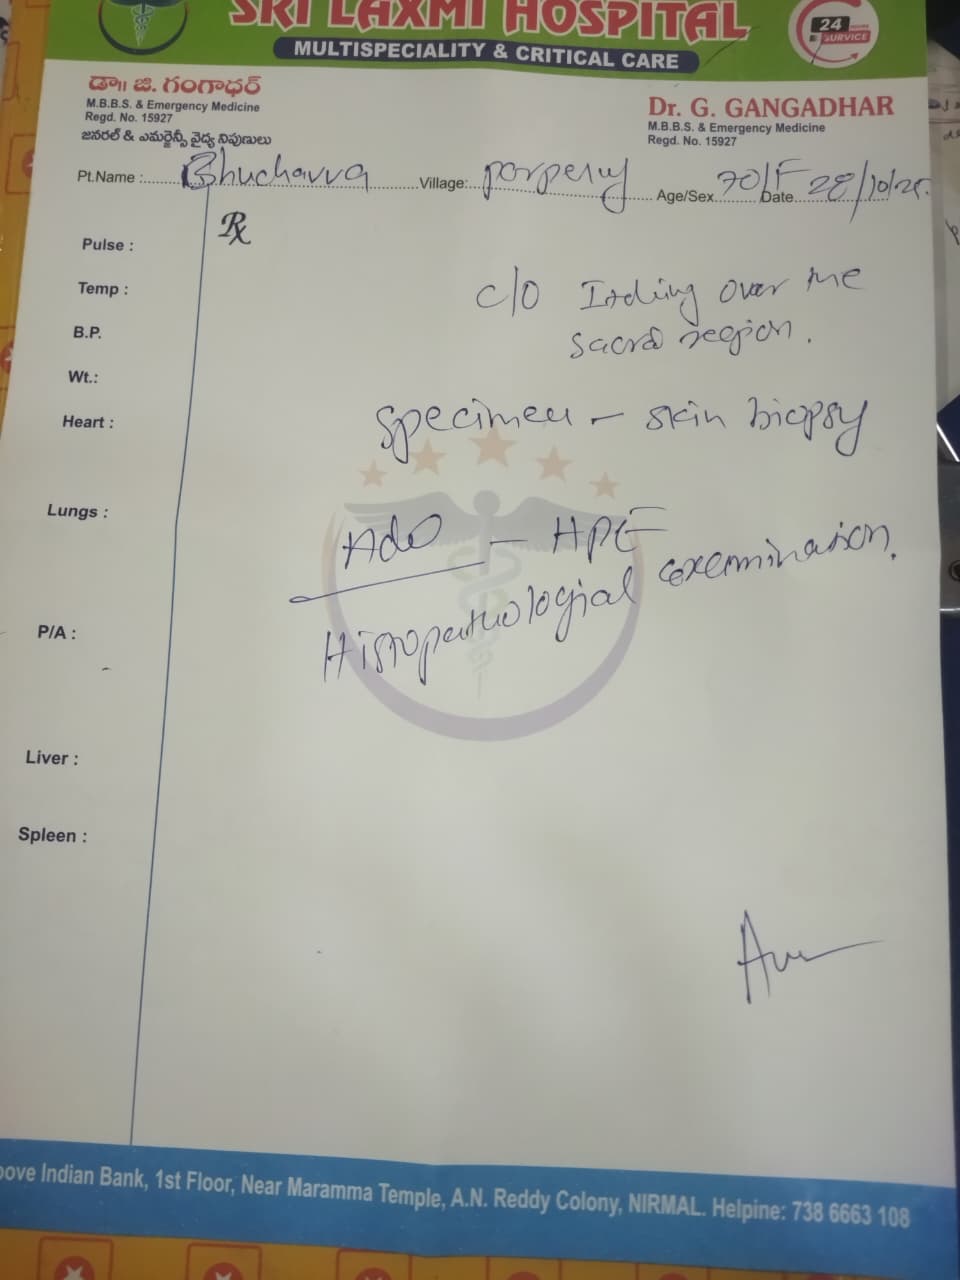 SRI LAXMI HOSPITAL
MULTISPECIALITY & CRITICAL CARE
24 HOURS SURVICE
డా॥ జి. గంగాధర్
M.B.B.S. & Emergency Medicine
Regd. No. 15927
జనరల్ & ఎమర్జెన్సీ వైద్య నిపుణులు
Dr. G. GANGADHAR
M.B.B.S. & Emergency Medicine
Regd. No. 15927
Pt.Name : Bhuchavva Village: Age/Sex 70/F Date 28/10/25.
Rx
Pulse :
Temp :
c/o Itching over the
sacral region.
B.P.
Wt.:
Heart :
specimen - skin biopsy
Lungs :
Ado - HPE
Histopathologial examination.
P/A :
Liver :
Spleen :
bove Indian Bank, 1st Floor, Near Maramma Temple, A.N. Reddy Colony, NIRMAL. Helpine: 738 6663 108